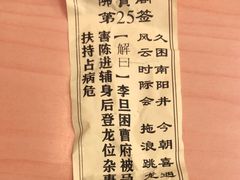 第25签
久困南阳井
今朝喜遇
风云时际会
拖浪跳龙
【解曰】李旦困曹府被
害陈进辅身后登龙位杂事
扶持占病危